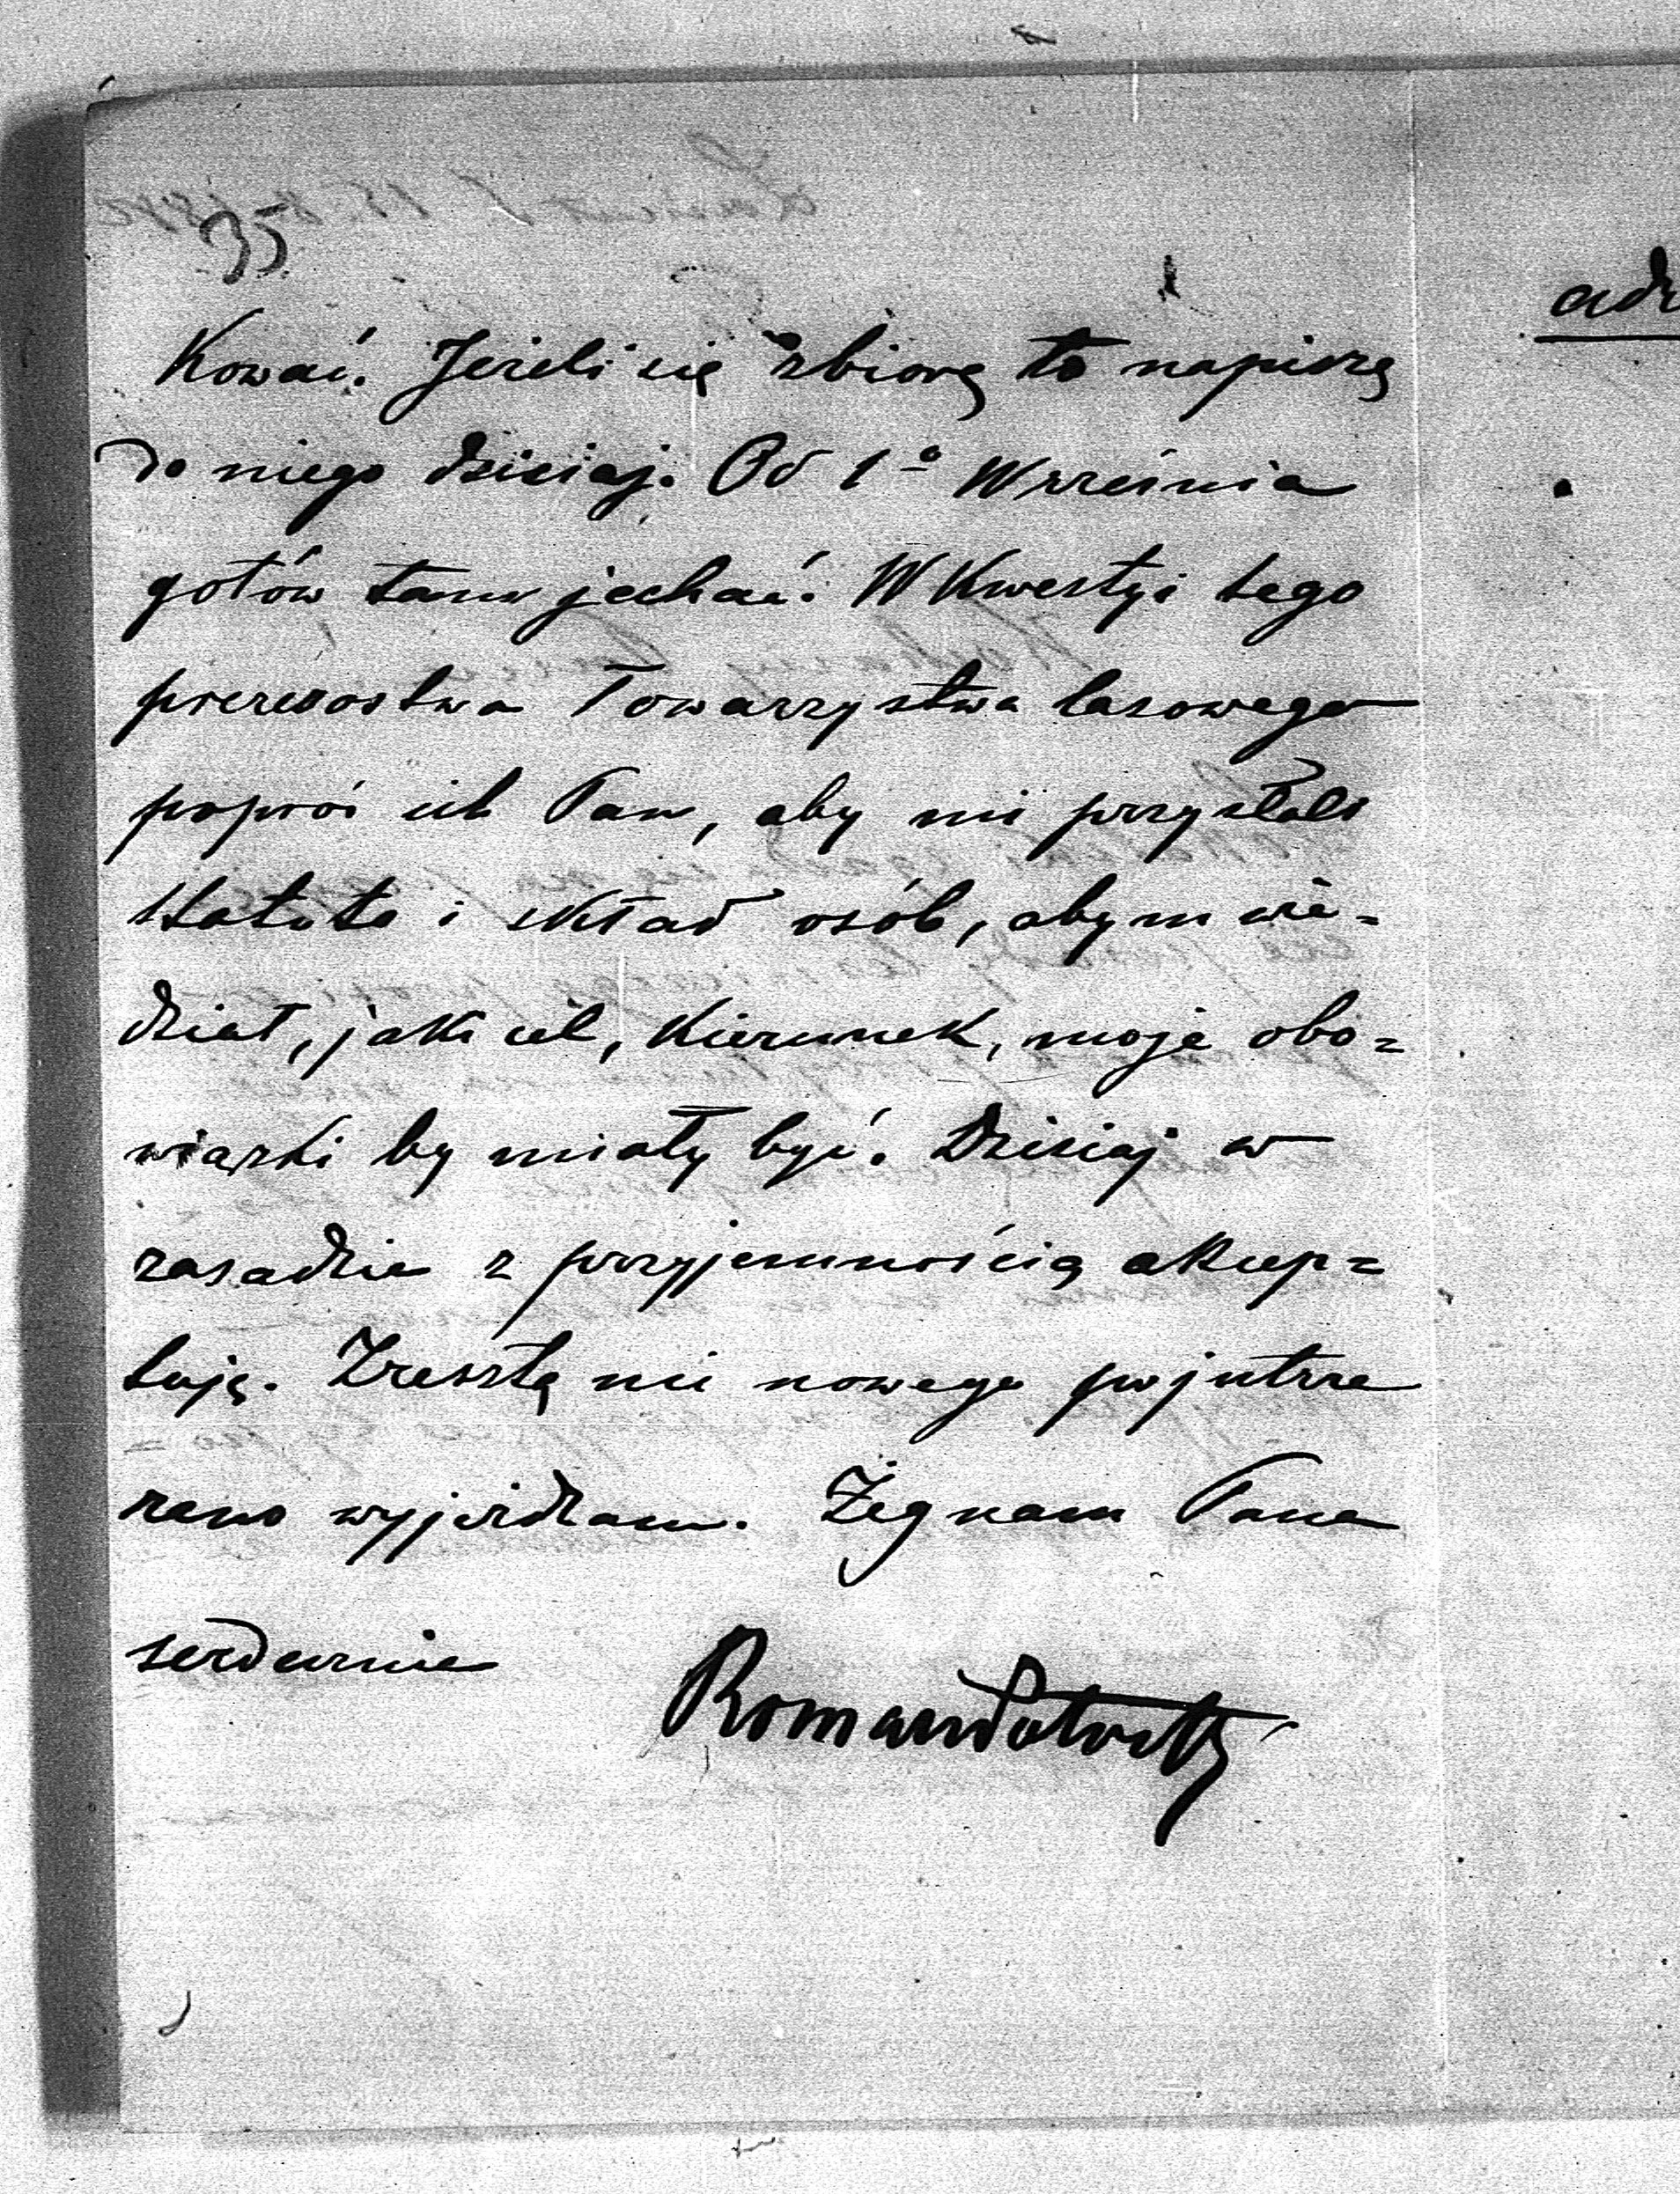 35
adr
kować. Jeżeli się zbiorą to napiszą
do niego dzisiaj. Od 1º Września
gotów tam jechać. W kwestyi tego
prezesostwa Towarzystwa lasowego
poproś ich Pan, aby mi przysłali
statuta i skład osób, abym wie=
dział, jaki cel, kierunek, moje obo=
wiązki by miały być. Dzisiaj w
zasadzie z przyjemnością akcep=
tuję. Zresztą nic nowego pojutrze
rano wyjeżdżam. Żegnam Pana
serdecznie
Roman Potocki